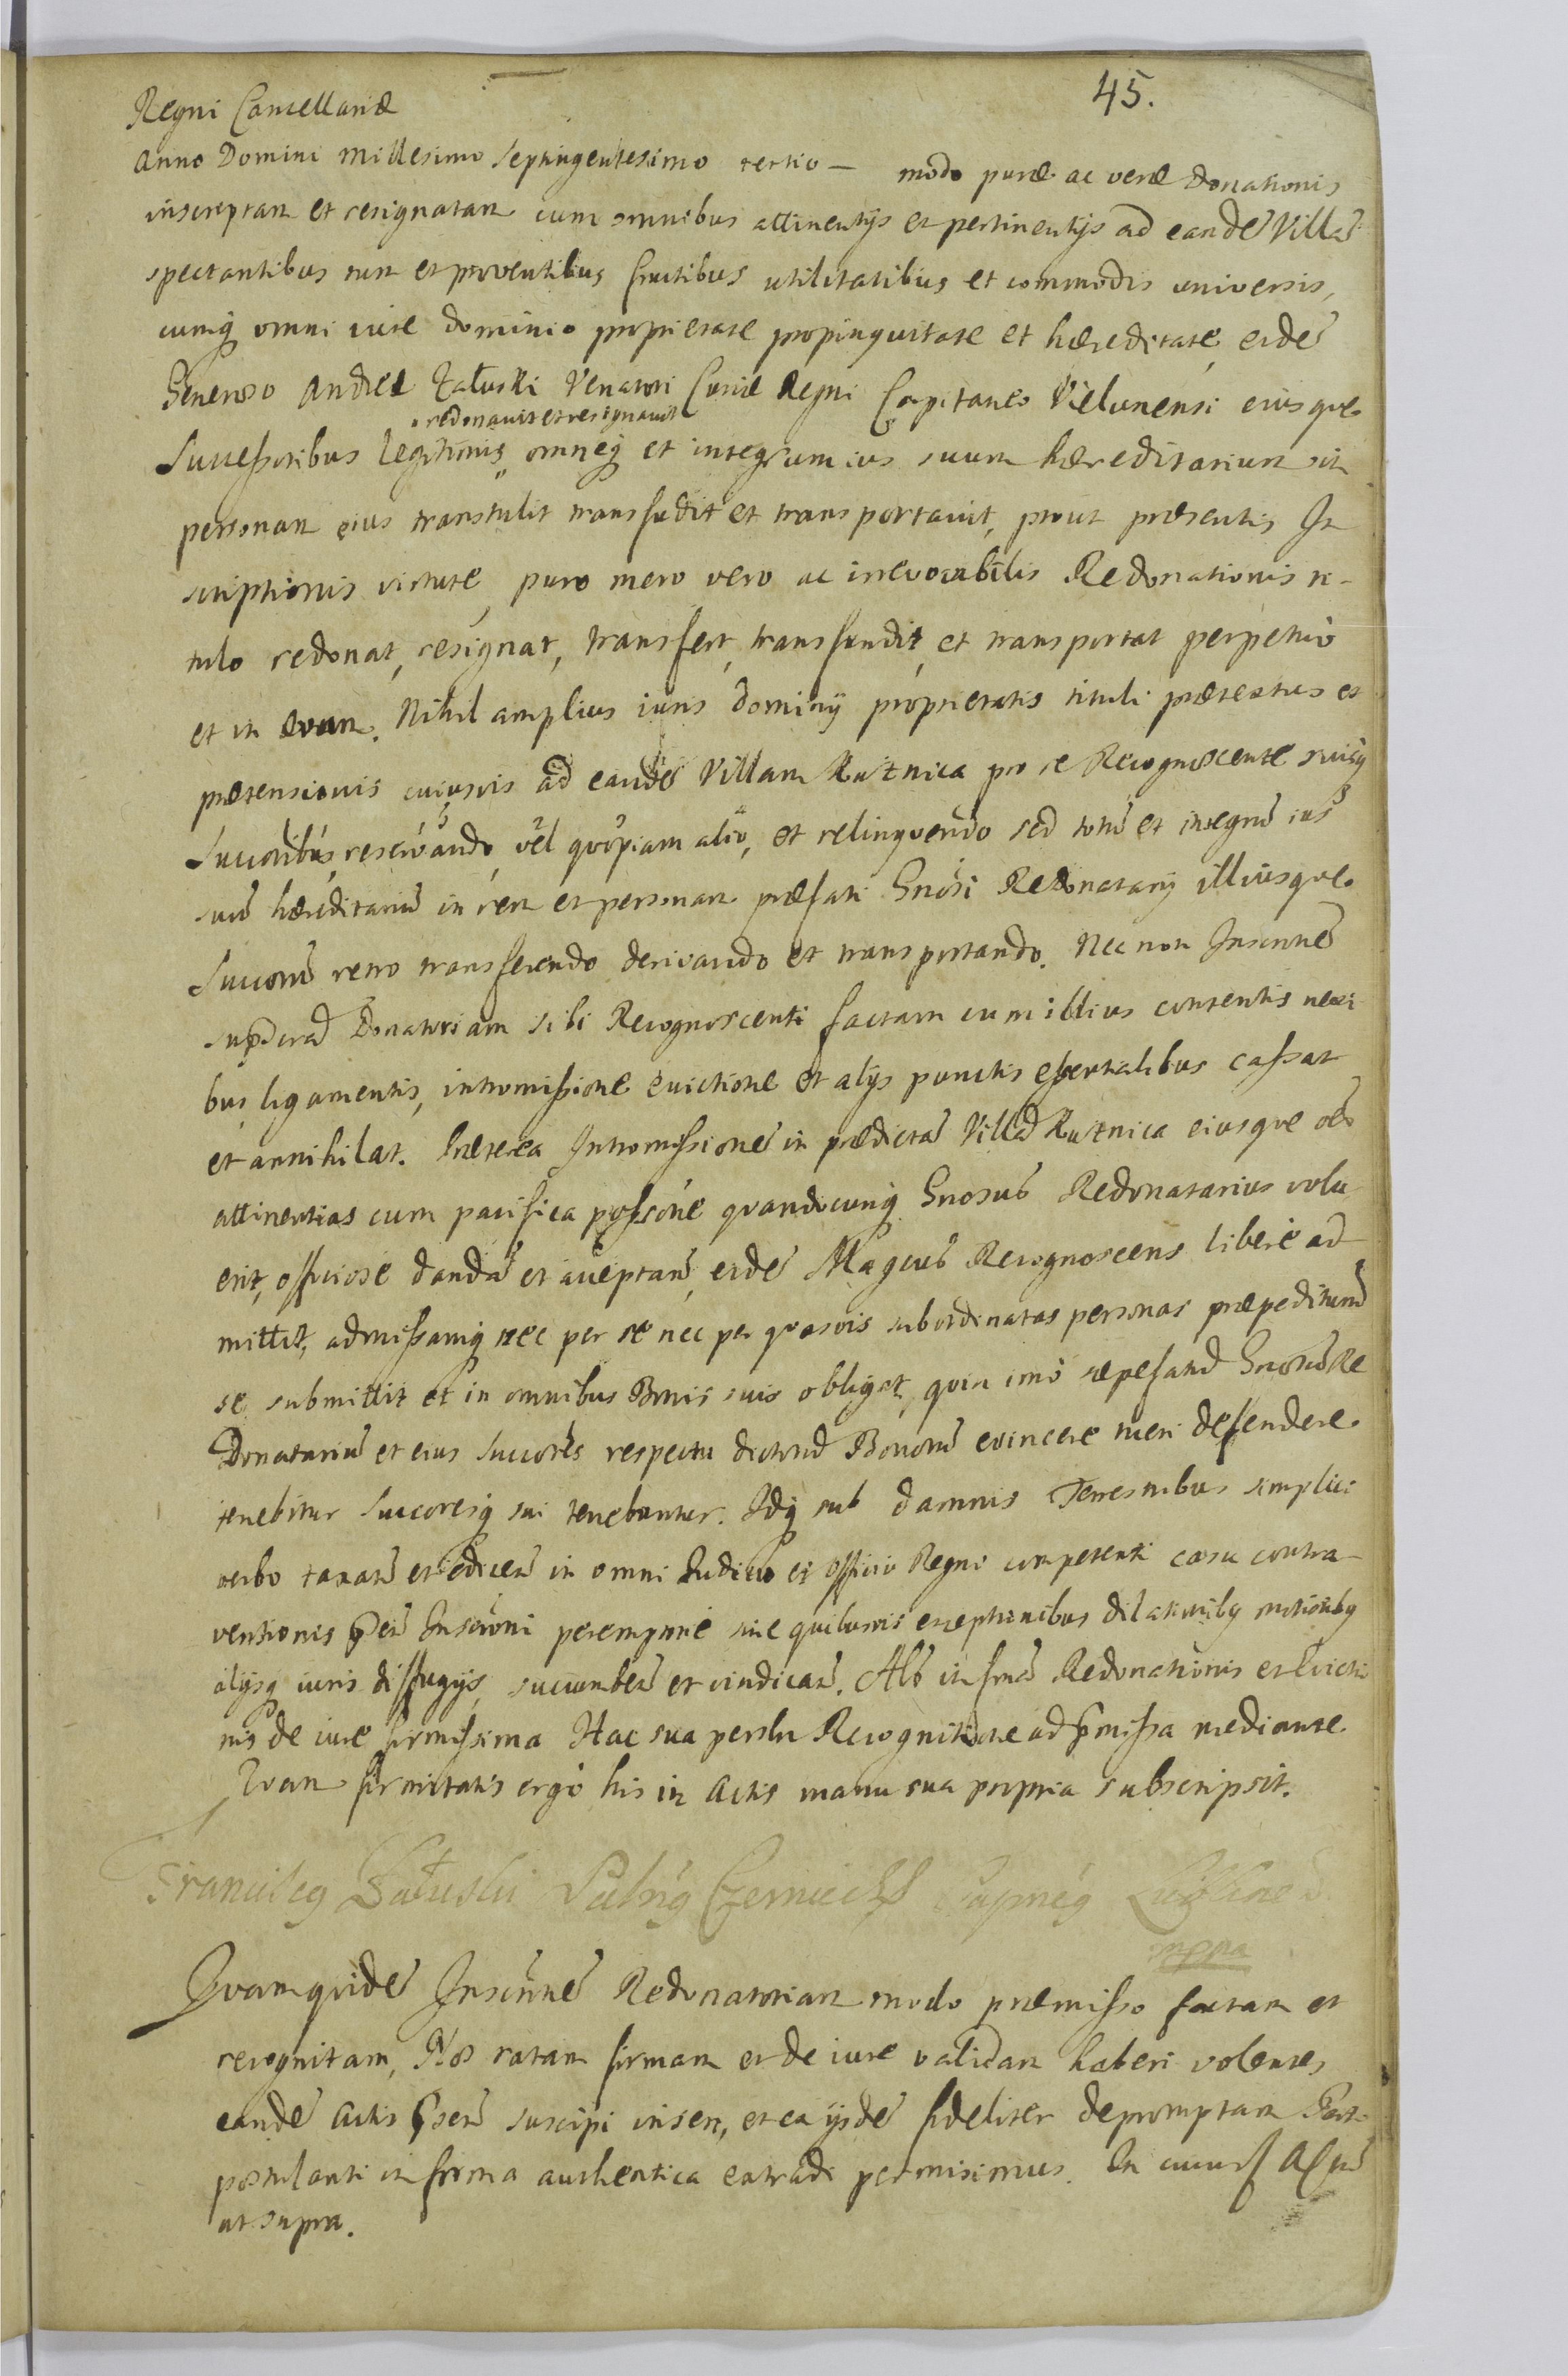 45.
Regni Cancellariæ
Anno Domini Millesimo Septingentesimo tertio — modo puræ ac veræ donationis
inscriptam et resignatam cum omnibus attinentijs et pertinentijs ad eandē Villā
spectantibus cum et proventibus fructibus utilitatibus et commodis universis,
cumq omni iure dominio proprietate propinquitate et hæreditate, eidē
Generoso Andreæ Załuski Venatori Curiæ Regni Capitaneo Vielunensi eiusque
redonavit et resignavit
Successoribus legitimis, omneq et integrum ius suum hæreditarium in
personam eius transtulit transfudit et transportavit, prout præsentis In
scriptionis virtute, puro mero vero ac irrevocabilis Redonationis ti-
tulo redonat, resignat, transfert, transfundit, et transportat perpetuo
et in ævum. Nihil amplius iuris dominij proprietatis tituli prætextus et
prætensionis cuiusvis ad eandē Villam Kuźnica pro se Recognoscente suisq
Succoribus, reservando, vel quopiam alio, et relinquendo sed totū et integrū ius
suū hæreditariū in rem et personam præfati Gnosi Redonatarij illiusque
Succorū retro transferendo derivando et transportando. Nec non Inscrinē
suprad Donatoriam sibi Recognoscenti factam cum illius contentis nexi
bus ligamentis, intromissione evictione et alijs punctis essentialibus cassat
et annihilat. Præterea Intromissionē in prædictā Villā Kuźnica eiusque oēs
attinentias cum pacifica possōne quandocunq Gnosus Redonatarius volu
erit, officiose dandā et acceptanā, eidē Magcus Recognoscens libere ad
mittit, admissamq nec per se nec per quasvis subordinatas personas præpediturū
se submittit et in omnibus Bonis suis obligat, quin imo sæpefatū Gnosū Re
Donatariū et eius Succores respectu dictorū Bonorū evincere tueri defendere
tenebitur Succoresq sui tenebuntur. Idq sub damnis Terrestribus simplici
verbo taxan et edicen in omni Iudicio et Officio Regni competenti casu contra-
ventionis Pnti Inscrōni peremptorie sine quibusvis exceptionibus dilationibq motionibq
alijsq iuris diffugijs, succumben et vindican. Als in fma Redonationis et Evictio
nis de iure firmissima Hac sua persln Recognitione ad pmissa mediante.
Quam firmitatis ergo his in Actis manu sua propria subscripsit.
Franciscq Załuski Palnq Czerniechs
mppa
Quamquidē Inscrinē Redonatoriam modo præmisso factam et
recognitam, Nos ratam firmam et de iure validam haberi volentes
eandē Actis Psen suscipi inseri, et ex ijsdē fideliter depromptam Part-
postulanti in forma authentica extradi permisimus. In cuius
ut supra.